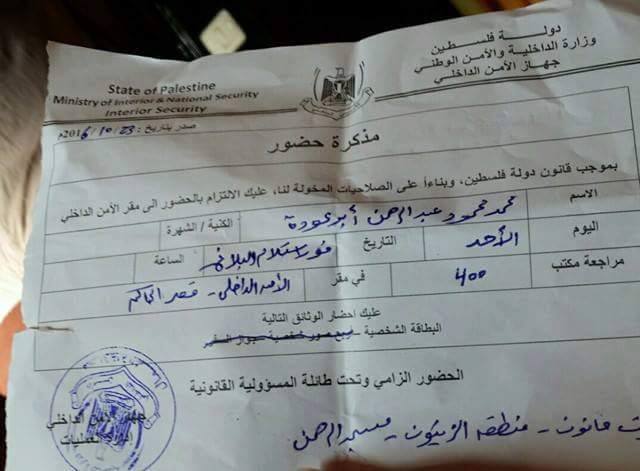 دولة فلسطين
وزارة الداخلية والأمن الوطني
جهاز الأمن الداخلي
State of Palestine
Ministry of Interior & National Security
Interior Security
صدر بتاريخ: 23/10/2016م
مذكرة حضور
بموجب قانون دولة فلسطين، وبناءاً على الصلاحيات المخولة لنا، عليك الالتزام بالحضور الى مقر الأمن الداخلي
الاسم محمد محمود عبد الرحمن أبو عودة الكنية / الشهرة
اليوم الأحد التاريخ فور استلام البلاغ الساعة
مراجعة مكتب 400 في مقر الأمن الداخلي - قصر الحاكم
عليك احضار الوثائق التالية
البطاقة الشخصية - اربع صور شخصية - جواز السفر
الحضور الزامي وتحت طائلة المسؤولية القانونية
جهاز الأمن الداخلي
إدارة العمليات
حانون - منطقة الزيتون - مسجد الرحمن